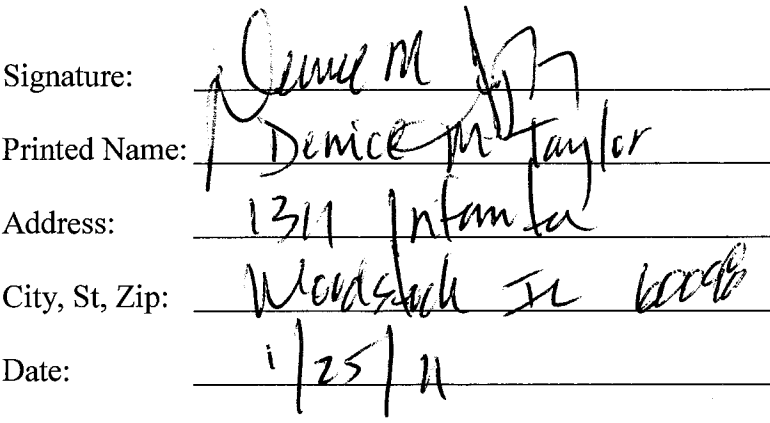 Signature: Denice M
Printed Name: Denice M Taylor
Address: 1311
City, St, Zip: Woodstock IL 60098
Date: 1/25/11